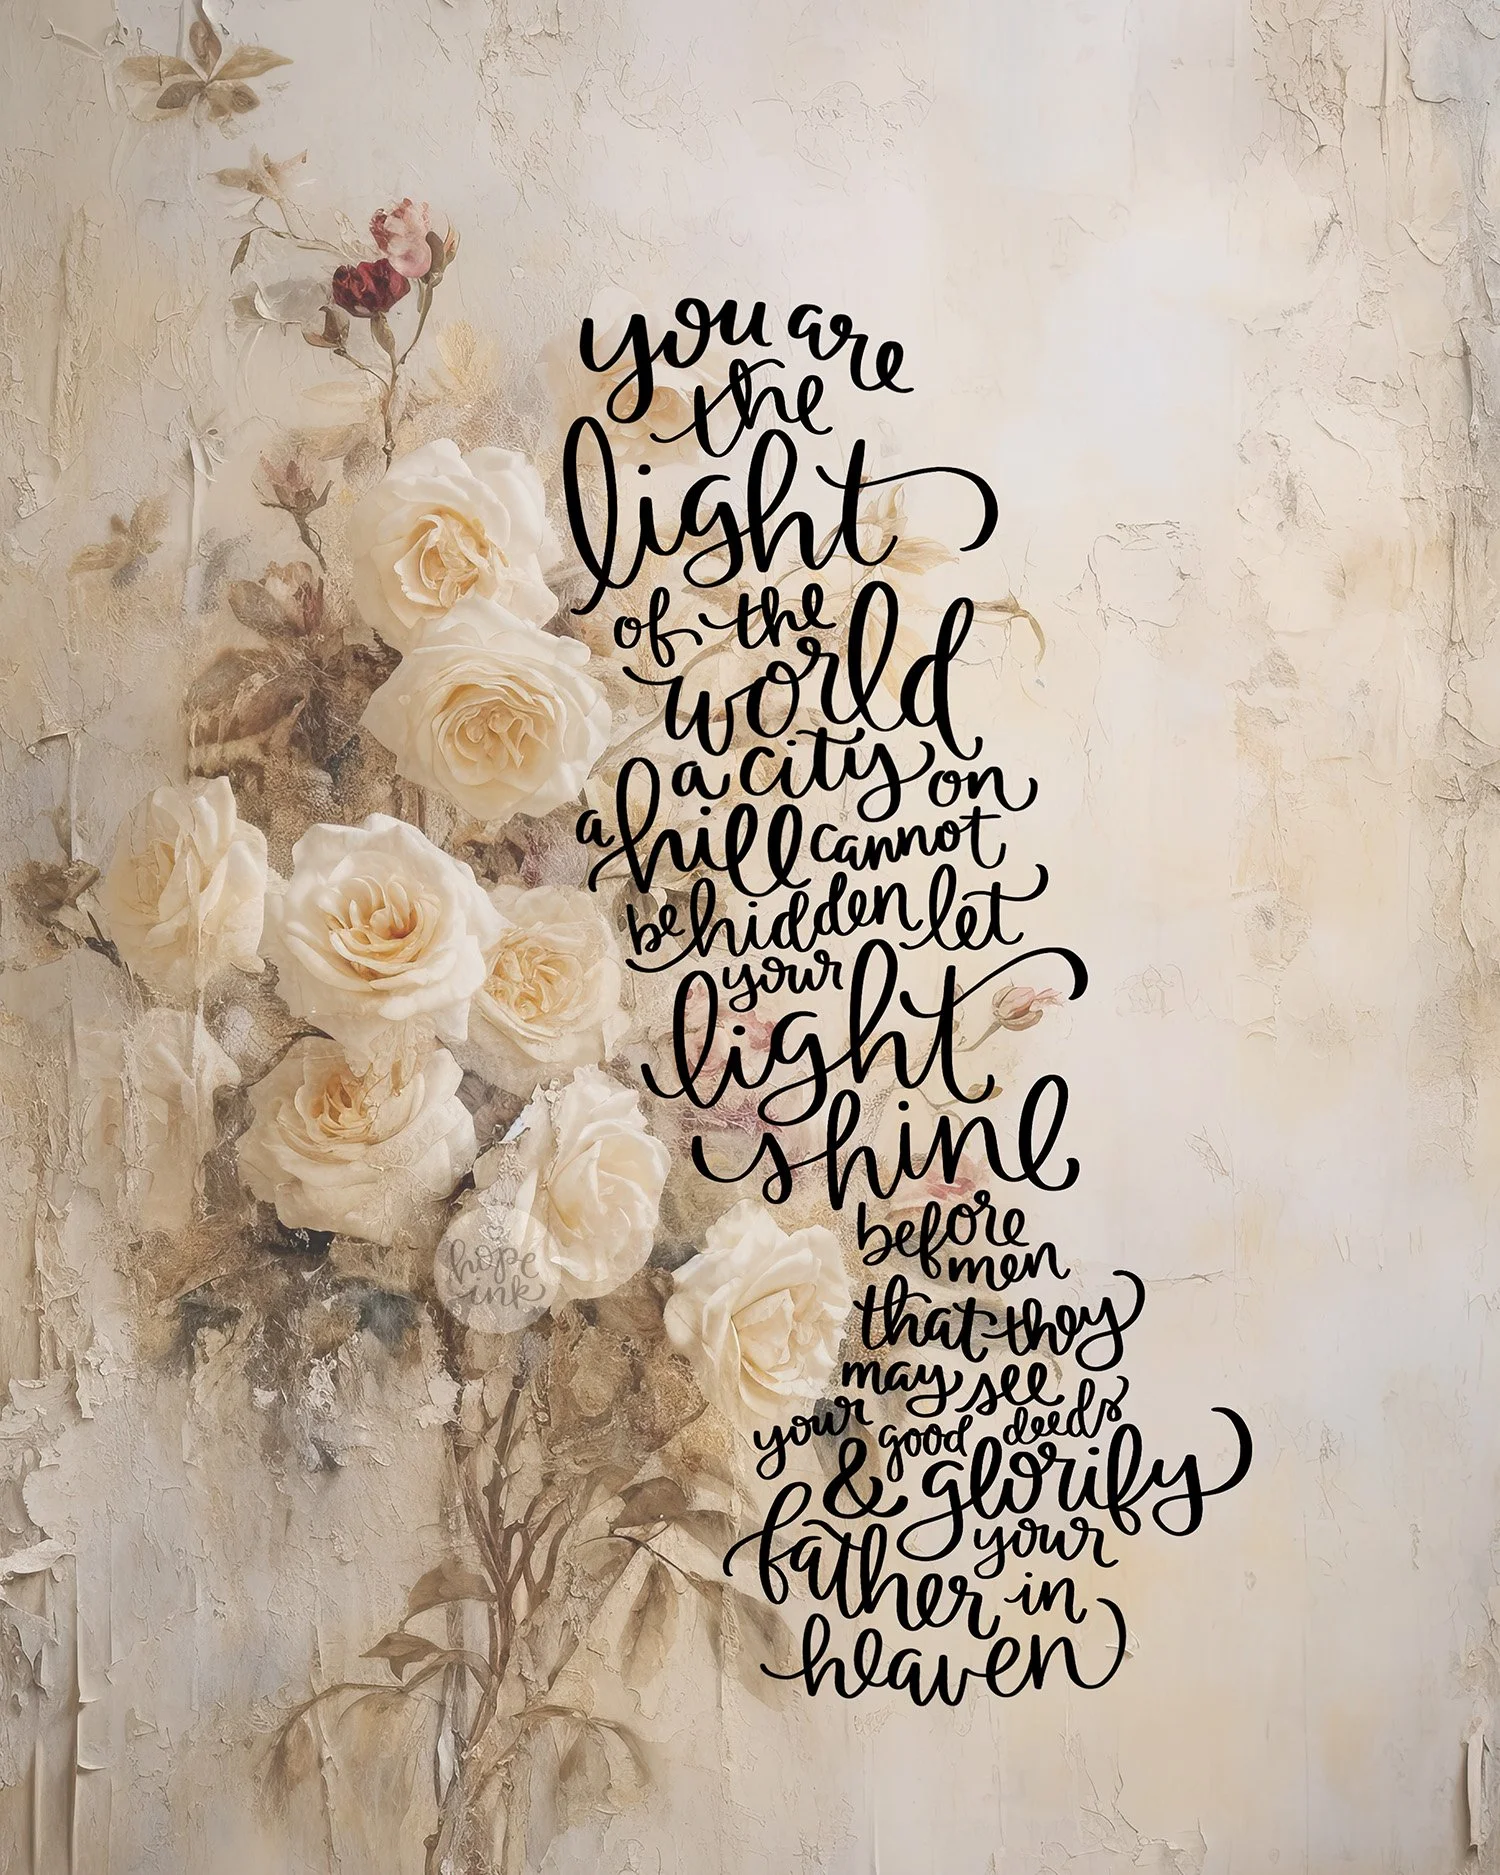 you are
the
light
of the
world
a city on
a hill cannot
be hidden let
your
light
shine
before
men
that they
may see
your good deeds
& glorify
your
father in
heaven
hope
ink